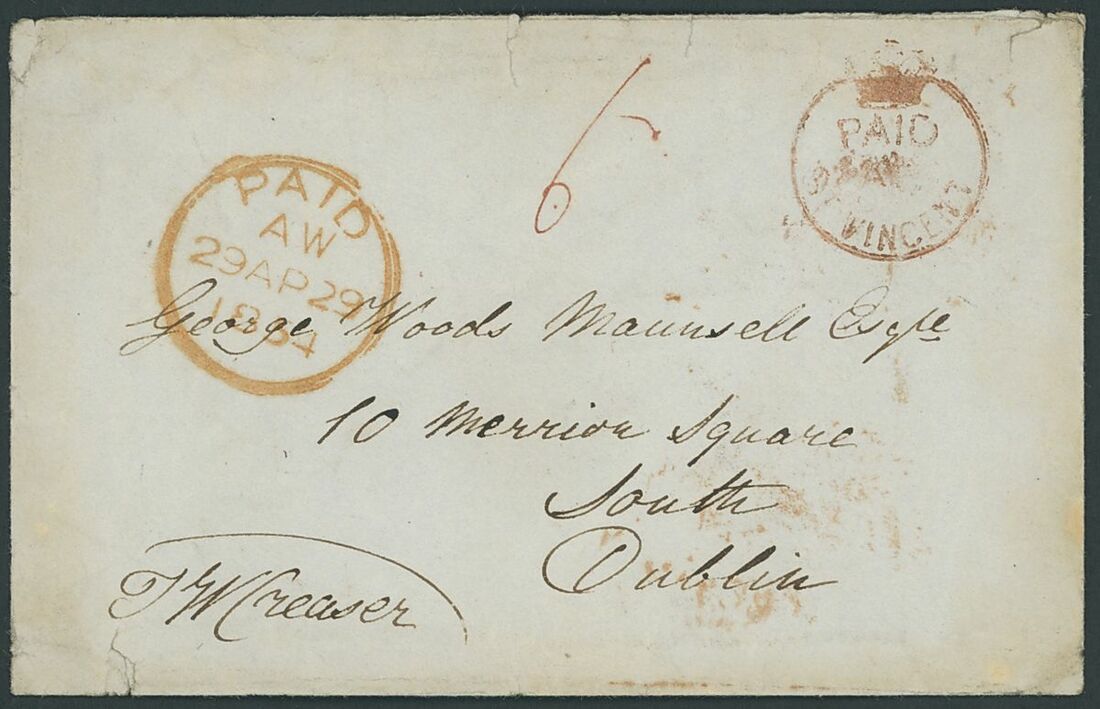 6
PAID
ST VINCENT
PAID
AW
29 AP 29
1864
George Woods Maunsell Esqre
10 Merrion Square
South
Dublin
TW Creaser